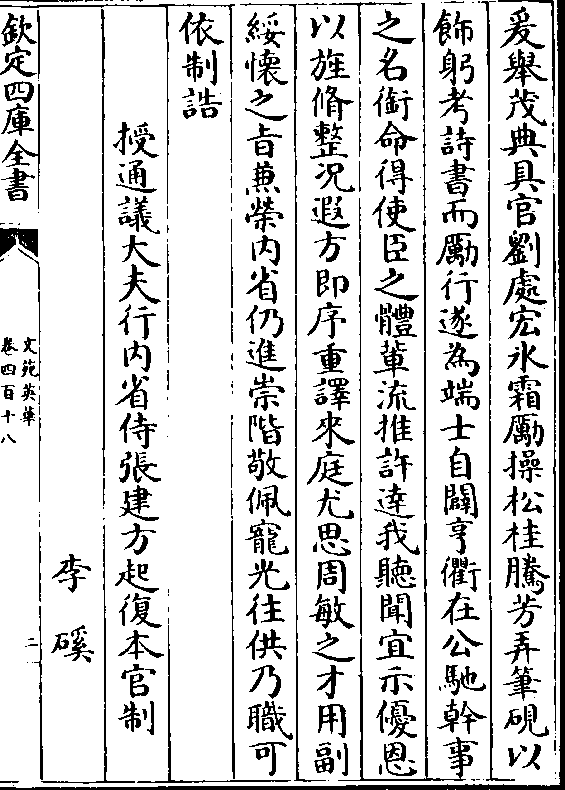 爰舉茂典具官劉處宏氷霜勵操松桂騰芳弄筆硯以
飾躬考詩書而勵行遂為端士自闢亨衢在公馳幹事
之名銜命得使臣之體輩流推許達我聽聞宜示優恩
以旌脩整況遐方即序重譯來庭尤思周敏之才用副
綏懷之㫖兼榮内省仍進崇階敬佩寵光往供乃職可
依制誥
授通議大夫行内省侍張建方起復本官制
李磎
欽定四庫全書
文苑英華
卷四百十八
二